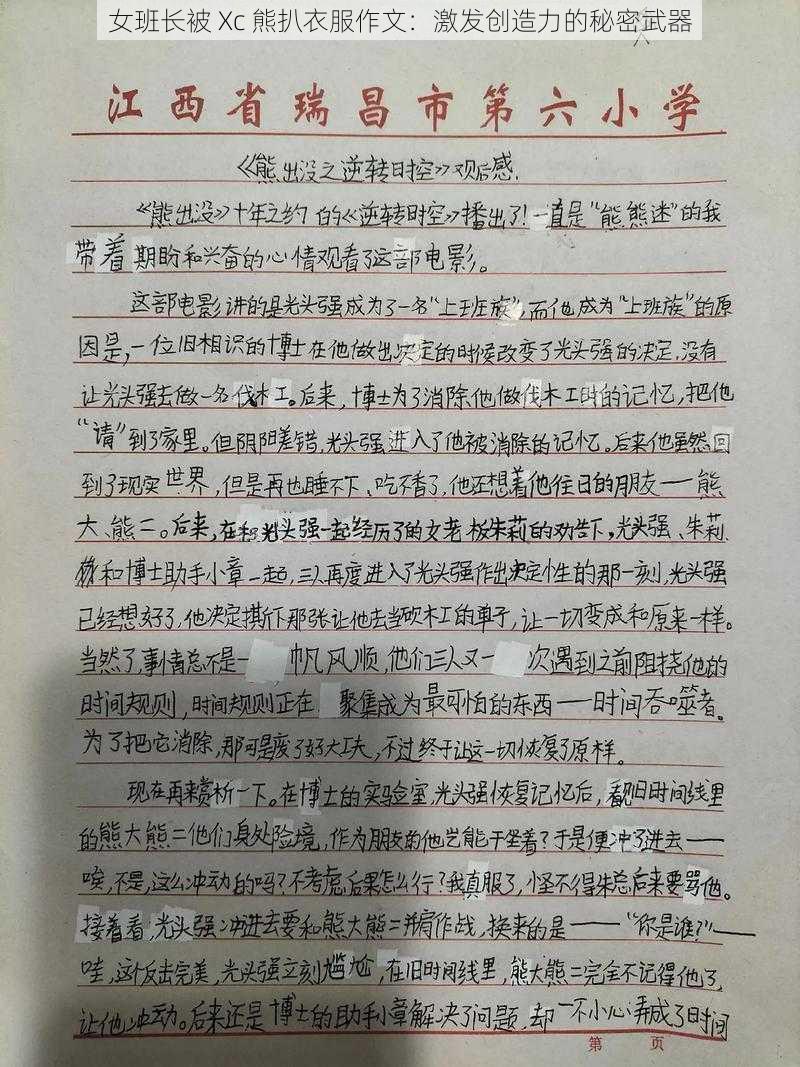 女班长被 Xc 熊扒衣服作文：激发创造力的秘密武器
江西省瑞昌市第六小学
《熊出没之逆转时空》观后感.
《熊出没》十年之约的《逆转时空》播出了！一直是“熊熊迷”的我
带着期盼和兴奋的心情观看了这部电影。
这部电影讲的是光头强成为了一名“上班族”，而他成为“上班族”的原
因是，一位旧相识的博士在他做出决定的时候改变了光头强的决定，没有
让光头强去做一名伐木工。后来，博士为了消除他做伐木工时的记忆，把他
“请”到了家里。但阴阳差错，光头强进入了他被消除的记忆。后来他虽然回
到了现实世界，但是再也睡不下、吃不香了，他还想着他往日的朋友——熊
大、熊二。后来，在和光头强一起经历了的女老板朱莉的劝告下，光头强、朱莉
和博士助手小章一起，三人再度进入了光头强作出决定性的那一刻，光头强
已经想好了，他决定撕下那张让他去当砍木工的单子，让一切变成和原来一样。
当然了，事情总不是一帆风顺，他们三人又一次遇到之前阻挠他的
时间规则，时间规则正在聚集成为最可怕的东西——时间吞噬者。
为了把它消除，那可是废了好大工夫，不过终于让这一切恢复了原样。
现在再来赏析一下。在博士的实验室，光头强恢复记忆后，看旧时间线里
的熊大熊二他们身处险境，作为朋友的他岂能干坐着？于是便冲了进去——
唉，不是，这么冲动的吗？不考虑后果怎么行？我真服了，怪不得朱总后来要骂他。
接着看，光头强冲进去要和熊大熊二并肩作战，换来的是——“你是谁？”——
哇，这个反击完美，光头强立刻尴尬，在旧时间线里，熊大熊二完全不记得他了，
让他冲动。后来还是博士的助手小章解决了问题，却一不小心弄成了时间
第 页